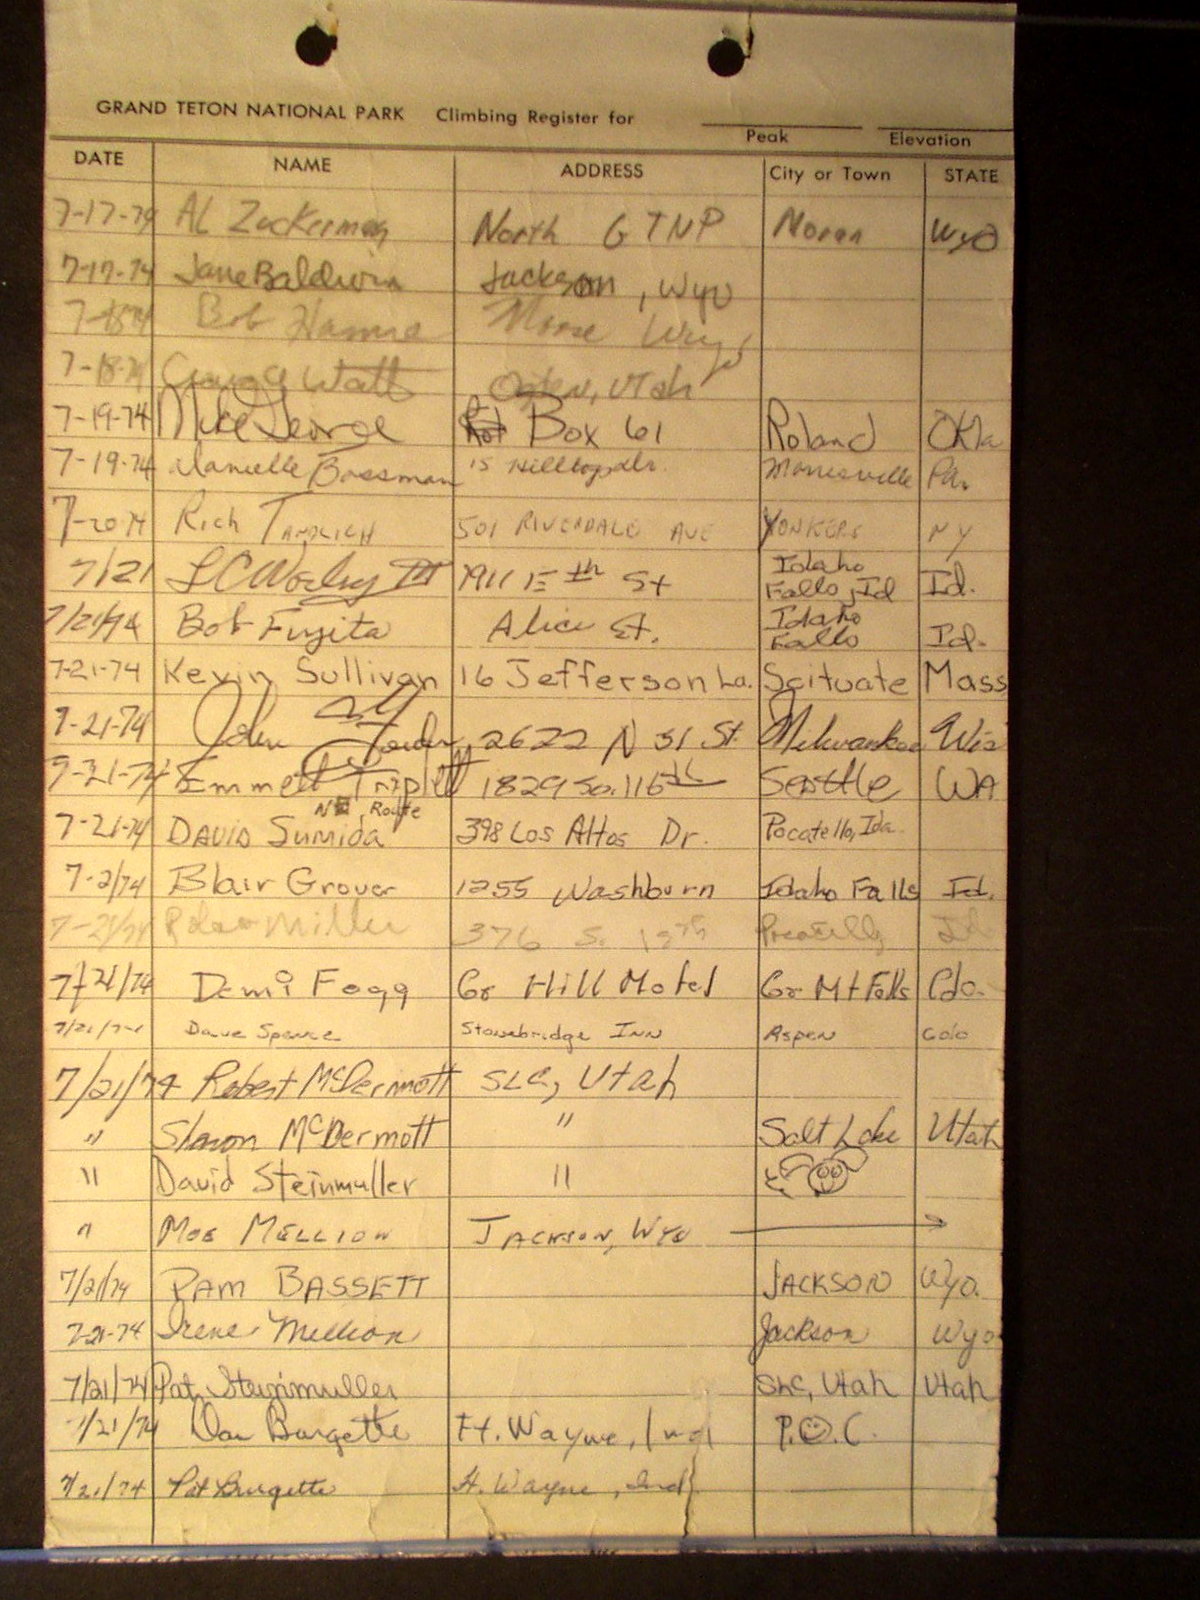 GRAND TETON NATIONAL PARK Climbing Register for
Peak Elevation
DATE NAME ADDRESS City or Town STATE
7-17-74 AL Zuckerman North GTNP Moran Wyo
7-17-74 Jane Baldwin Jackson, Wyo
Bob Moose Wyo
7-18-74 Watt Ogden, Utah
7-19-74 Mike George Box 61 Roland Okla
7-19-74 Danielle Bossman 15 Hilltop dr. Morrisville Pa.
7-20 74 Rich 501 RIVERDALE AVE YONKERS NY
7/21 LC III 1911 E th St Idaho Falls, Id Id.
7/21/74 Bob Fujita Alice St. Idaho Falls Id.
7-21-74 Kevin Sullivan 16 Jefferson La. Scituate Mass
7-21-74 John 2622 N 51 St. Milwaukee Wis
7-21-74 Emmett Triplett 1829 So. 116th Seattle WA
NE Route
7-21-74 DAVID Sumida 398 Los Altos Dr. Pocatello, Ida.
7-21/74 Blair Grover 1255 Washburn Idaho Falls Id.
Miller 376 S. 19th Pocatello Id
7/21/74 Demi Fogg Gr Hill Motel Gr Mt Falls Colo.
7/21/74 Dave Spence Stonebridge INN Aspen Colo
7/21/74 Robert McDermott SLC, Utah
" Sharon McDermott " Salt Lake Utah
" David Steinmuller "
" MOE MELLION JACKSON, WYO
7/21/74 PAM BASSETT JACKSON Wyo.
7-21-74 Irene Mellion Jackson Wyo
7/21/74 Pat Steinmuller SLC, Utah Utah
7/21/74 Dan Burgette Ft. Wayne, Ind P.O.C.
7/21/74 Pat Burgette Ft. Wayne, Ind